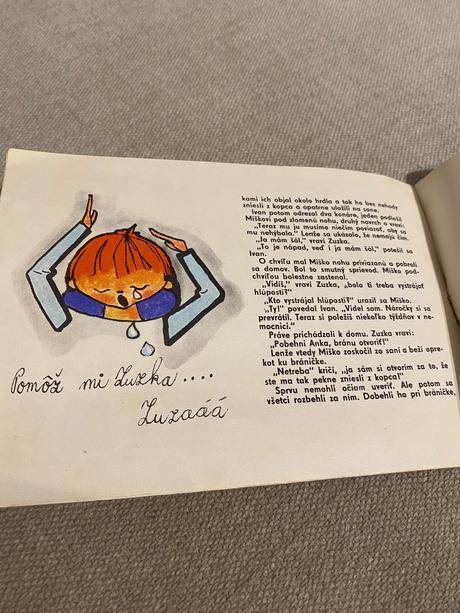 Pomôž mi Zuzka....
Zuzááá
kami ich objal okolo hrdla a tak ho bez nehody
zniesli z kopca a opatrne uložili na sane.
Ivan potom odrezal dva konáre, jeden podložil
Miškovi pod zlomenú nohu, druhý navrch a vraví:
„Teraz mu ju musíme niečím poviazať, aby sa
mu nehýbala.“ Lenže sa ukázalo, že nemajú čím.
„Ja mám šál,“ vraví Zuzka.
„To je nápad, veď i ja mám šál,“ potešil sa
Ivan.
O chvíľu mal Miško nohu priviazanú a pobrali
sa domov. Bol to smutný sprievod. Miško pod-
chvíľou bolestne zastenal.
„Vidíš,“ vraví Zuzka, „bolo ti treba vystrájať
hlúposti?“
„Kto vystrájal hlúposti?“ urazil sa Miško.
„Ty!“ povedal Ivan. „Videl som. Náročky si sa
prevrátil. Teraz si poležíš niekoľko týždňov v ne-
mocnici.“
Práve prichádzali k domu. Zuzka vraví:
„Pobehni Anka, bránu otvoriť!“
Lenže vtedy Miško zoskočil zo saní a beží opre-
kot ku bráničke.
„Netreba“ kričí, „ja sám si otvorím za to, že
ste ma tak pekne zniesli z kopca!“
Sprvu nemohli očiam uveriť. Ale potom sa
všetci rozbehli za ním. Dobehli ho pri bráničke,